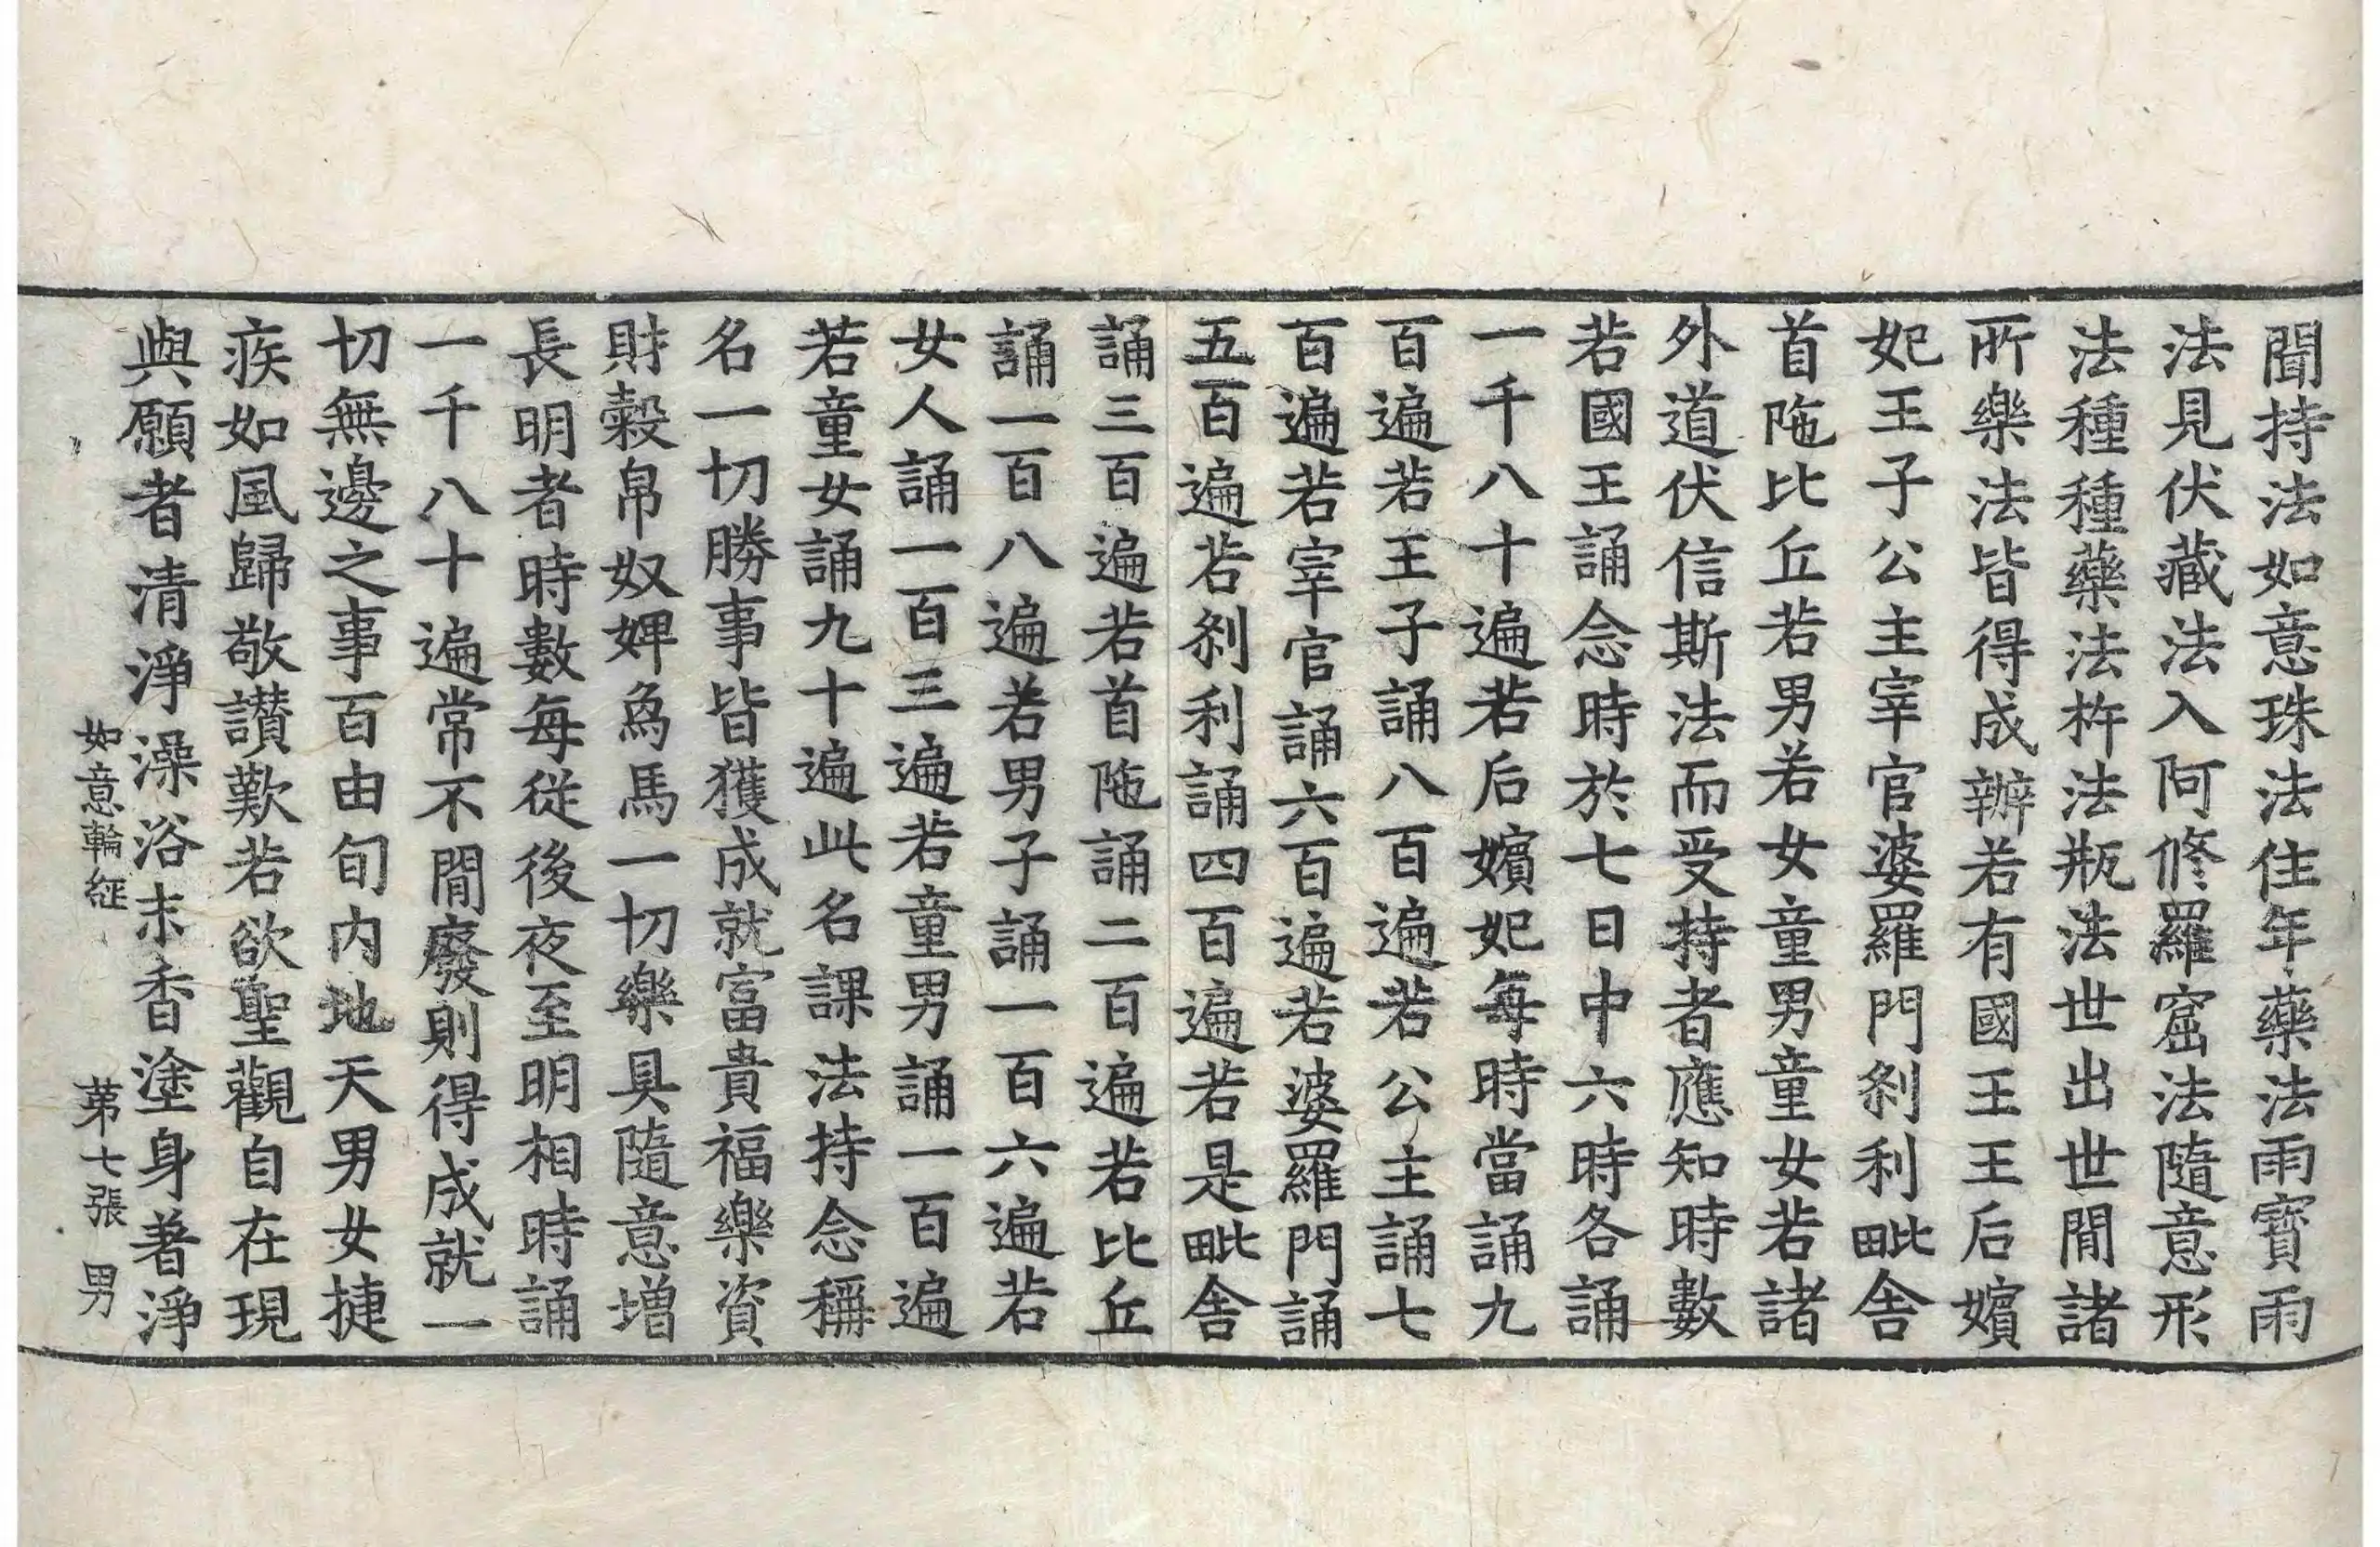 聞持法如意珠法住年藥法雨寶雨
法見伏藏法入阿修羅窟法隨意形
法種種藥法杵法瓶法世出世間諸
所樂法皆得成辦若有國王王后嬪
妃王子公主宰官婆羅門剎利毗舍
首陁比丘若男若女童男童女若諸
外道伏信斯法而受持者應知時數
若國王誦念時於七日中六時各誦
一千八十遍若后嬪妃每時當誦九
百遍若王子誦八百遍若公主誦七
百遍若宰官誦六百遍若婆羅門誦
五百遍若剎利誦四百遍若是毗舍
誦三百遍若首陁誦二百遍若比丘
誦一百八遍若男子誦一百六遍若
女人誦一百三遍若童男誦一百遍
若童女誦九十遍此名課法持念稱
名一切勝事皆獲成就富貴福樂資
財穀帛奴婢象馬一切樂具隨意增
長明者時數每從後夜至明相時誦
一千八十遍常不間廢則得成就一
切無邊之事百由旬內地天男女捷
疾如風歸敬讚歎若欲聖觀自在現
與願者清淨澡浴末香塗身著淨
如意輪経 第七張 男